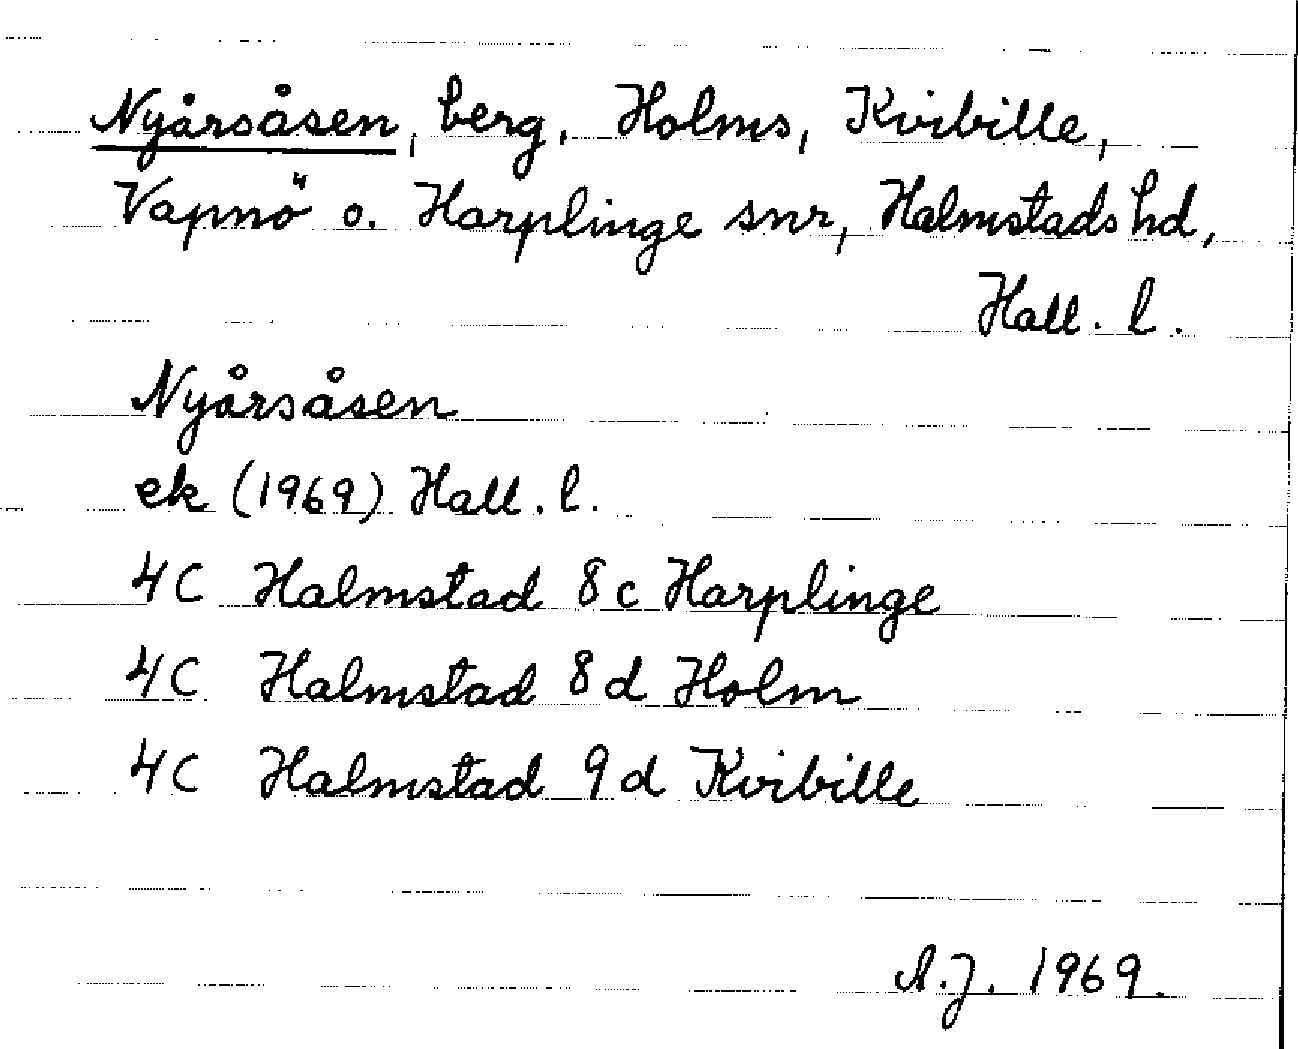 Nyårsåsen, berg, Holms, Kvibille,
Vapnö o. Harplinge snr, Halmstads hd,
Hall. l.
Nyårsåsen
ek (1969) Hall. l.
4C Halmstad 8c Harplinge
4C Halmstad 8d Holm
4C Halmstad 9d Kvibille
A.J. 1969.